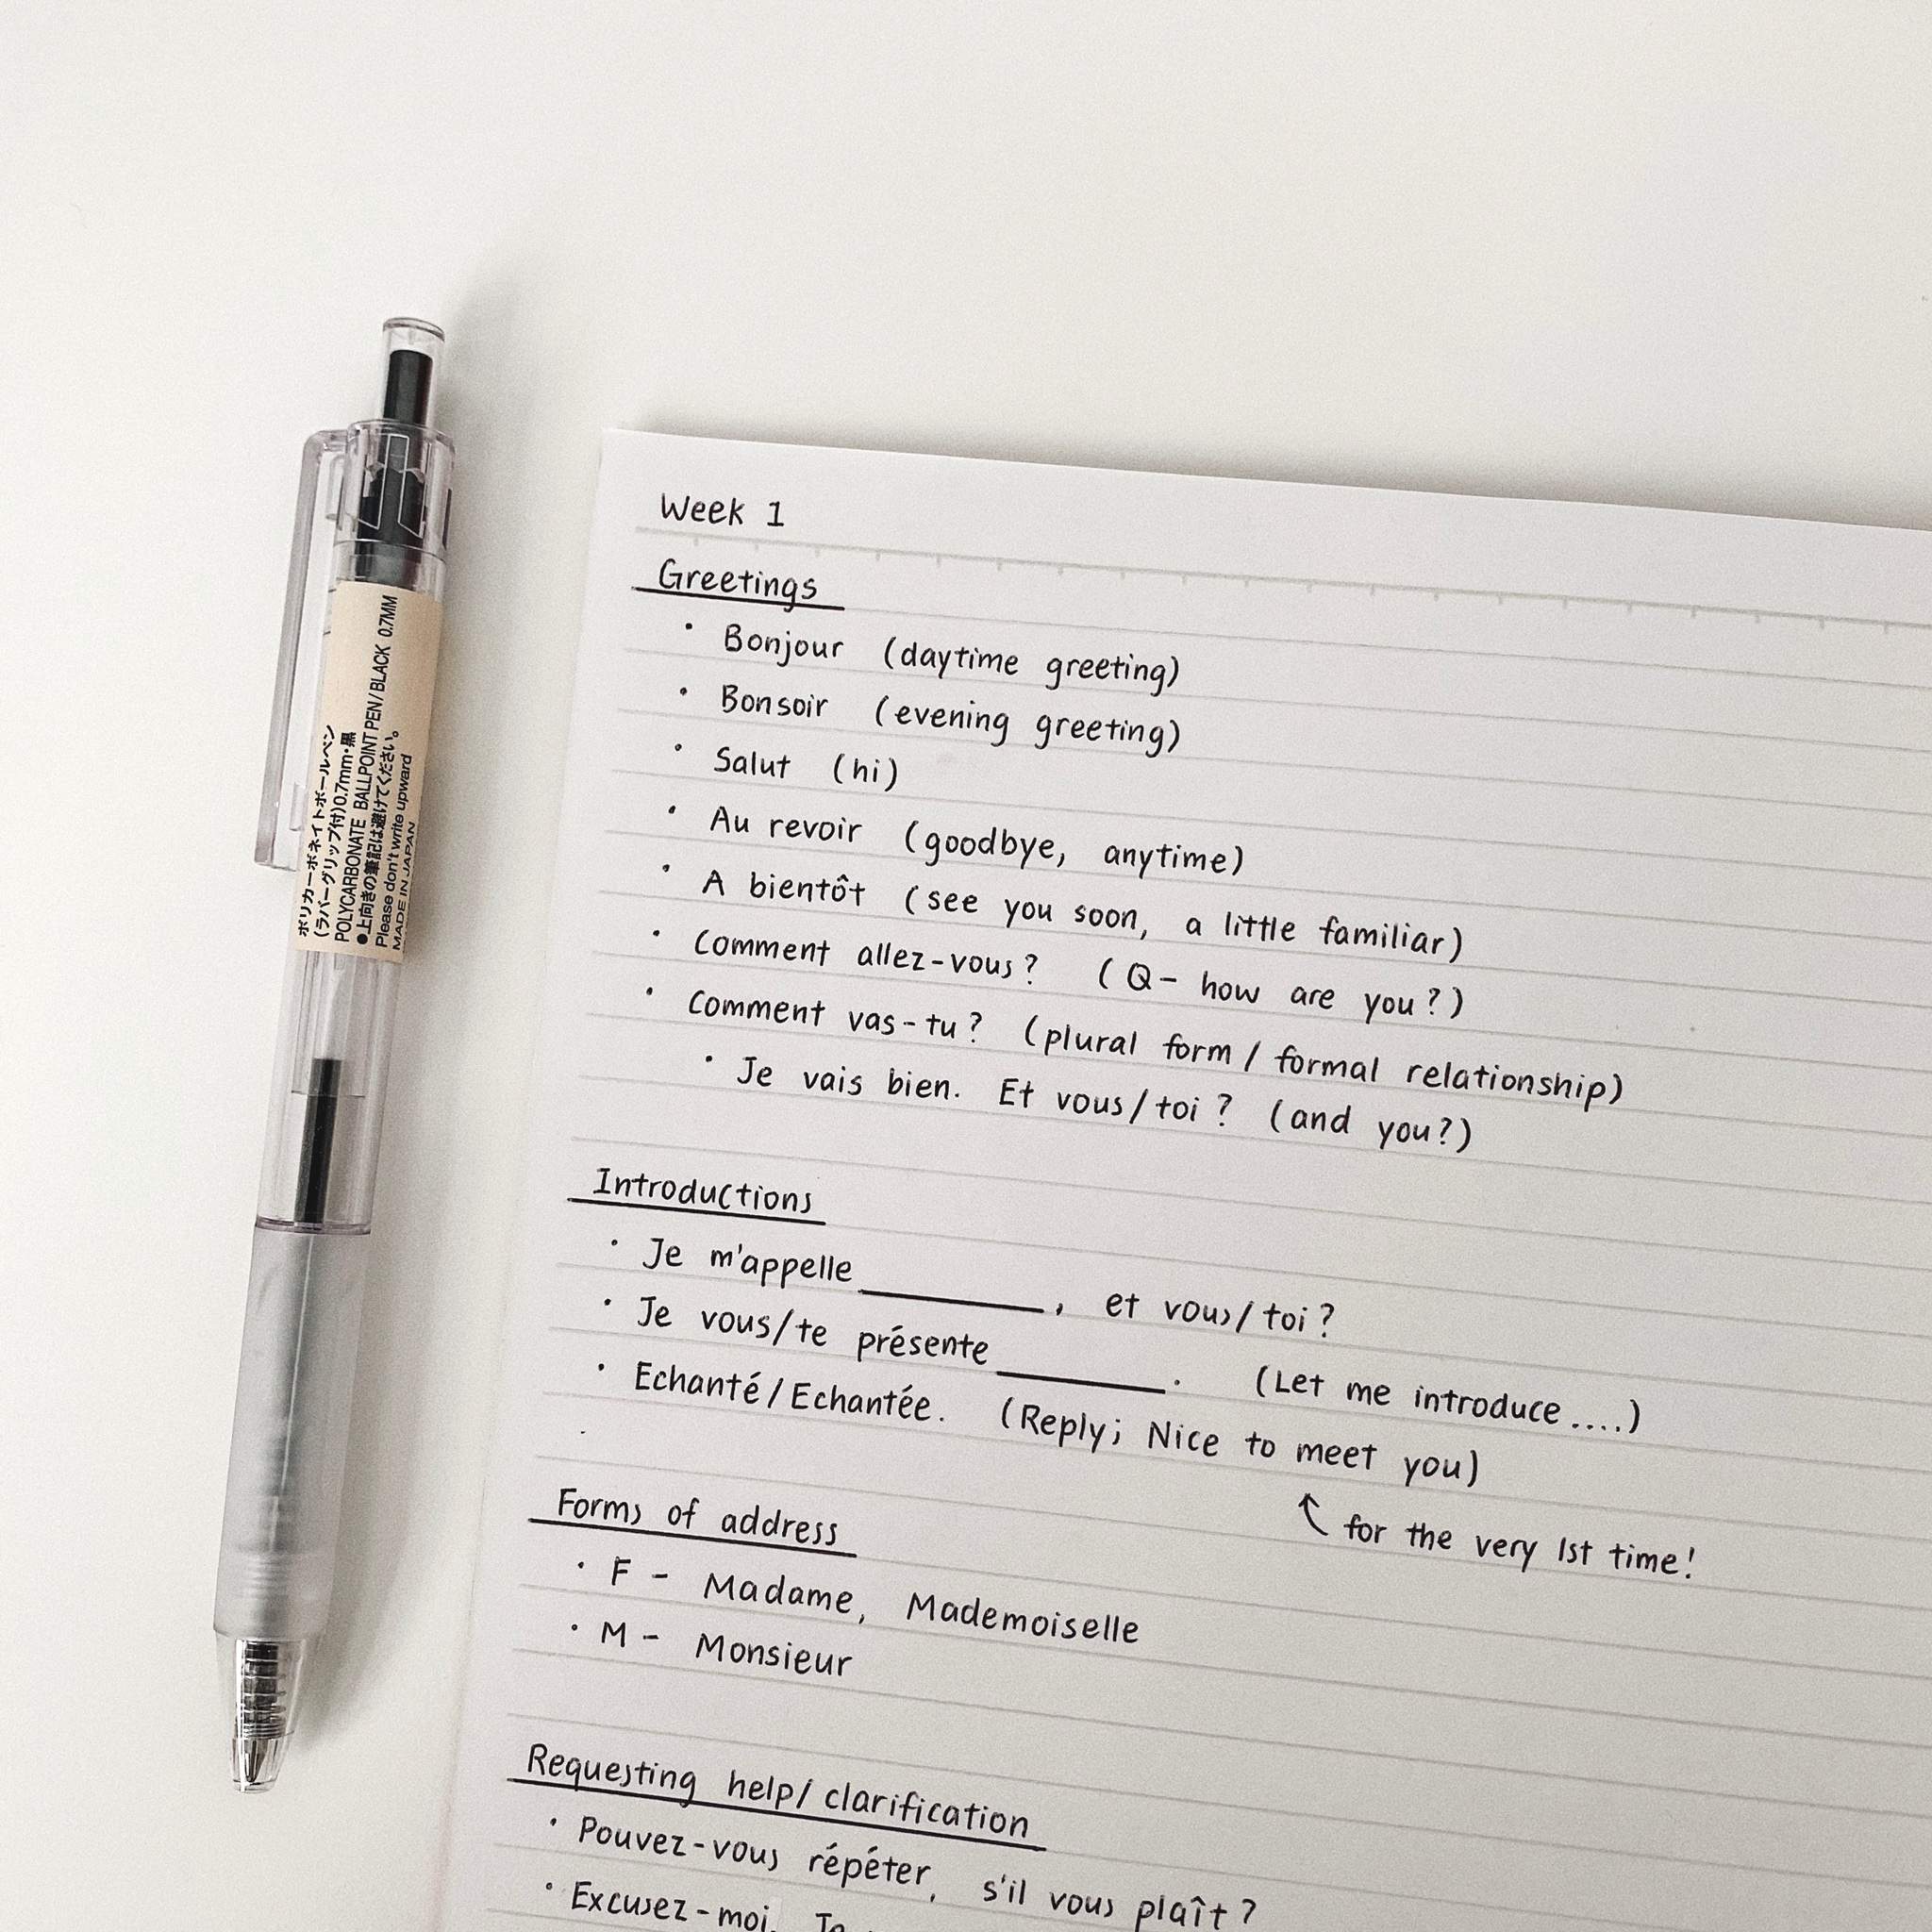 ポリカーボネイトボールペン
(ラバーグリップ付)0.7mm・黒
POLYCARBONATE BALLPOINT PEN / BLACK 0.7MM
●上向きの筆記は避けてください。
Please don't write upward
MADE IN JAPAN
Week 1
Greetings
· Bonjour (daytime greeting)
· Bonsoir (evening greeting)
· Salut (hi)
· Au revoir (goodbye, anytime)
· A bientôt (see you soon, a little familiar)
· Comment allez-vous? (Q- how are you?)
· Comment vas-tu? (plural form / formal relationship)
· Je vais bien. Et vous/toi? (and you?)
Introductions
· Je m'appelle ________, et vous/toi?
· Je vous/te présente ________. (Let me introduce....)
· Echanté/Echantée. (Reply; Nice to meet you)
for the very 1st time!
Forms of address
· F - Madame, Mademoiselle
· M - Monsieur
Requesting help/clarification
· Pouvez-vous répéter, s'il vous plaît?
· Excusez-moi.